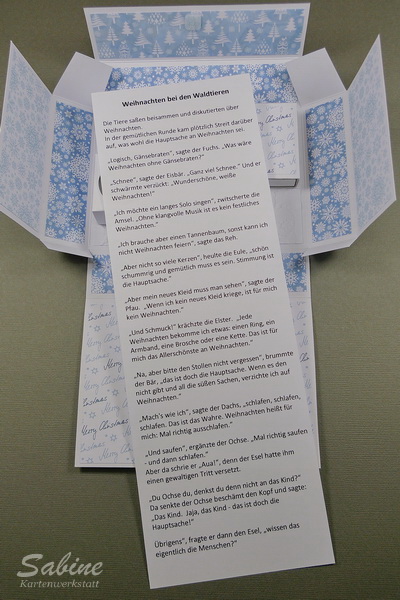 Weihnachten bei den Waldtieren
Die Tiere saßen beisammen und diskutierten über
Weihnachten.
In der gemütlichen Runde kam plötzlich Streit darüber
auf, was wohl die Hauptsache an Weihnachten sei.
„Logisch, Gänsebraten", sagte der Fuchs. „Was wäre
Weihnachten ohne Gänsebraten?"
„Schnee", sagte der Eisbär. „Ganz viel Schnee." Und er
schwärmte verzückt: „Wunderschöne, weiße
Weihnachten!"
„Ich möchte ein langes Solo singen", zwitscherte die
Amsel. „Ohne klangvolle Musik ist es kein festliches
Weihnachten."
„Ich brauche aber einen Tannenbaum, sonst kann ich
nicht Weihnachten feiern", sagte das Reh.
„Aber nicht so viele Kerzen", heulte die Eule, „schön
schummrig und gemütlich muss es sein. Stimmung ist
die Hauptsache."
„Aber mein neues Kleid muss man sehen", sagte der
Pfau. „Wenn ich kein neues Kleid kriege, ist für mich
kein Weihnachten."
„Und Schmuck!" krächzte die Elster. „Jede
Weihnachten bekomme ich etwas: einen Ring, ein
Armband, eine Brosche oder eine Kette. Das ist für
mich das Allerschönste an Weihnachten."
„Na, aber bitte den Stollen nicht vergessen", brummte
der Bär, „das ist doch die Hauptsache. Wenn es den
nicht gibt und all die süßen Sachen, verzichte ich auf
Weihnachten."
„Mach's wie ich", sagte der Dachs, „schlafen, schlafen,
schlafen. Das ist das Wahre. Weihnachten heißt für
mich: Mal richtig ausschlafen."
„Und saufen", ergänzte der Ochse. „Mal richtig saufen
- und dann schlafen."
Aber da schrie er „Aua!", denn der Esel hatte ihm
einen gewaltigen Tritt versetzt.
„Du Ochse du, denkst du denn nicht an das Kind?"
Da senkte der Ochse beschämt den Kopf und sagte:
„Das Kind. Jaja, das Kind - das ist doch die
Hauptsache!"
Übrigens", fragte er dann den Esel, „wissen das
eigentlich die Menschen?"
Merry Christmas
Merry Christmas
Sabine
Kartenwerkstatt